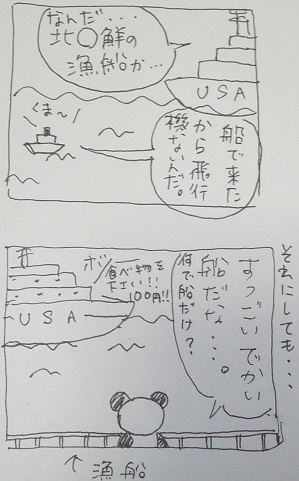 なんだ・・・
北〇鮮の
漁船か…
USA
くま〜
船で来た
から飛行
機ないんだ。
それにしても・・・
すっごいでかい
船だなぁ・・・。
何で船だけ？
ボ
食べ物を
下エい!!
100円!!
USA
↑漁船